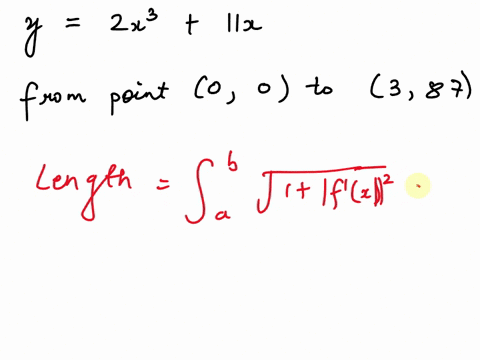 y = 2x³ + 11x
from point (0, 0) to (3, 87)
Length = ∫ₐᵇ √(1 + |f'(x)|²